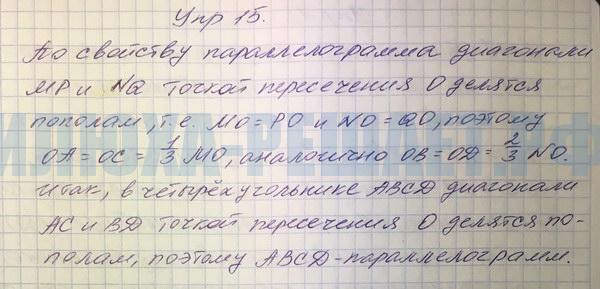 Упр 15.
По свойству параллелограмма диагонали
MP и NQ точкой пересечения O делятся
пополам, т.е. MO = PO и NO = QO, поэтому
OA = OC = 1/3 MO, аналогично OB = OD = 2/3 NO.
Итак, в четырёхугольнике ABCD диагонали
AC и BD точкой пересечения O делятся по-
полам, поэтому ABCD - параллелограмм.